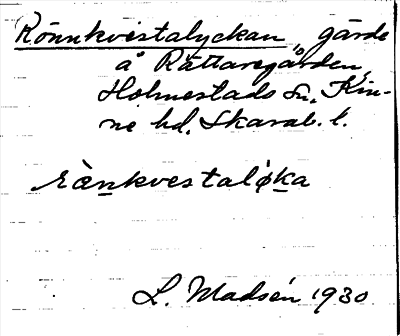 Rönnkvistalyckan, gärde
å Rättaregården,
Holmestads sn, Kin-
ne hd, Skarab. l.
ràn̲kvestalø̀k̲a
L. Madsén 1930